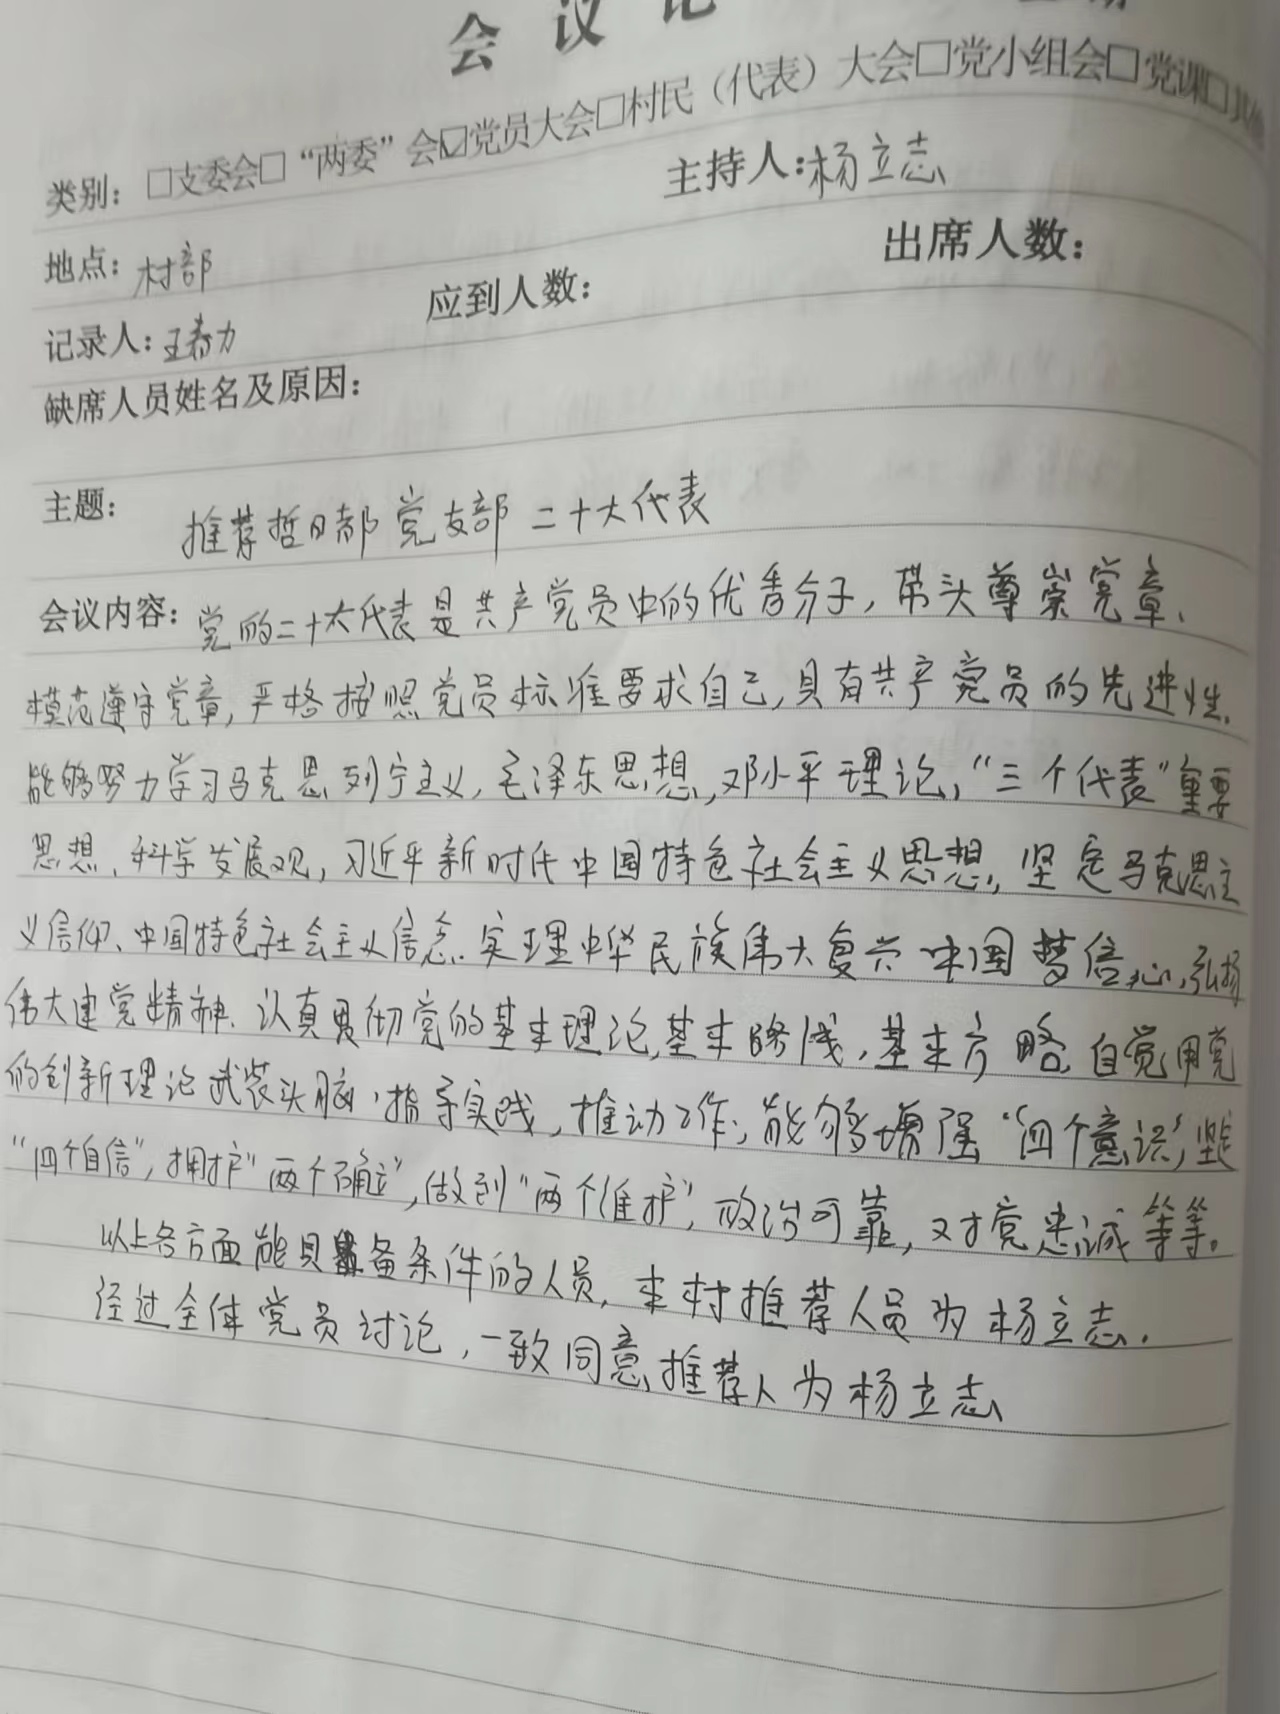 会议记
类别：□支委会□“两委”会☑党员大会□村民（代表）大会□党小组会□党课□其他
主持人：杨立志
地点：村部
出席人数：
应到人数：
记录人：王春力
缺席人员姓名及原因：
主题：推荐哲日郝党支部二十大代表
会议内容：党的二十大代表是共产党员中的优秀分子，带头尊崇党章、
模范遵守党章，严格按照党员标准要求自己，具有共产党员的先进性，
能够努力学习马克思列宁主义，毛泽东思想，邓小平理论，“三个代表”重要
思想、科学发展观，习近平新时代中国特色社会主义思想，坚定马克思主
义信仰、中国特色社会主义信念、实理中华民族伟大复兴中国梦信心，弘扬
伟大建党精神、认真贯彻党的基本理论，基本路线，基本方略，自觉用党
的创新理论武装头脑，指导实践，推动工作，能够增强“四个意识”，坚定
“四个自信”，拥护“两个确立”，做到“两个维护”，政治可靠，对党忠诚等等。
以上各方面能具备条件的人员，本村推荐人员为杨立志．
经过全体党员讨论，一致同意推荐人为杨立志